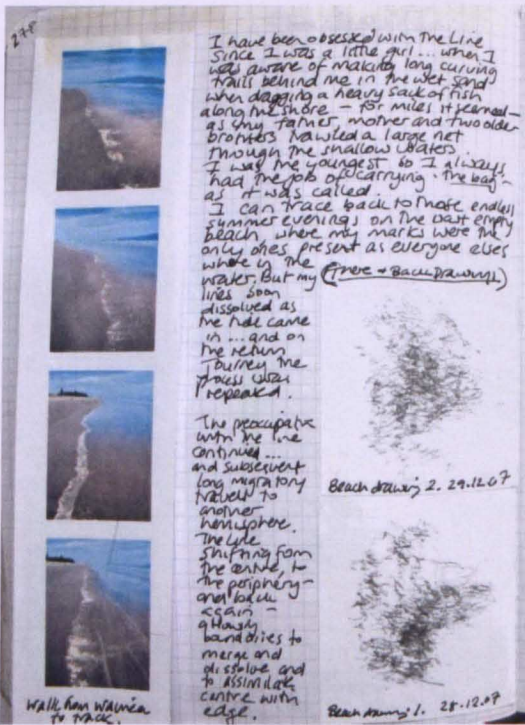 278
I have been obsessed with the Line
since I was a little girl... when I
was aware of making long curving
trails behind me in the wet sand
when dagging a heavy sack of fish
along the shore – for miles it seemed –
as my father, mother and two older
brothers trawled a large net
through the shallow waters.
I was the youngest so I always
had the job of carrying 'the bag' –
as it was called.
I can trace back to those endless
summer evenings on the vast empty
beach where my marks were the
only ones present as everyone elses
where in the
water. But my
lines soon
dissolved as
the tide came
in ... and on
the return
Journey the
process was
repeated.
(There + Back Drawings)
The preocupation
with the line
continued...
and subsequent
long migratory
travels to
another
hemisphere.
The Line
shifting from
the centre, to
the periphery –
and back
again –
allowing
boundries to
merge and
dissolve and
to assimilate
centre with
edge.
Beach drawing 2. 29.12.07
Beach drawing 1. 28.12.07
Walk from Waimea
to track.